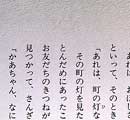 あれは、おほし
といって、そのときの
「あれは、町の灯なの
その町の灯を見た
とんだめにあったこ
お友だちのきつねが
見つかって、さんざ
「かあちゃん、なに